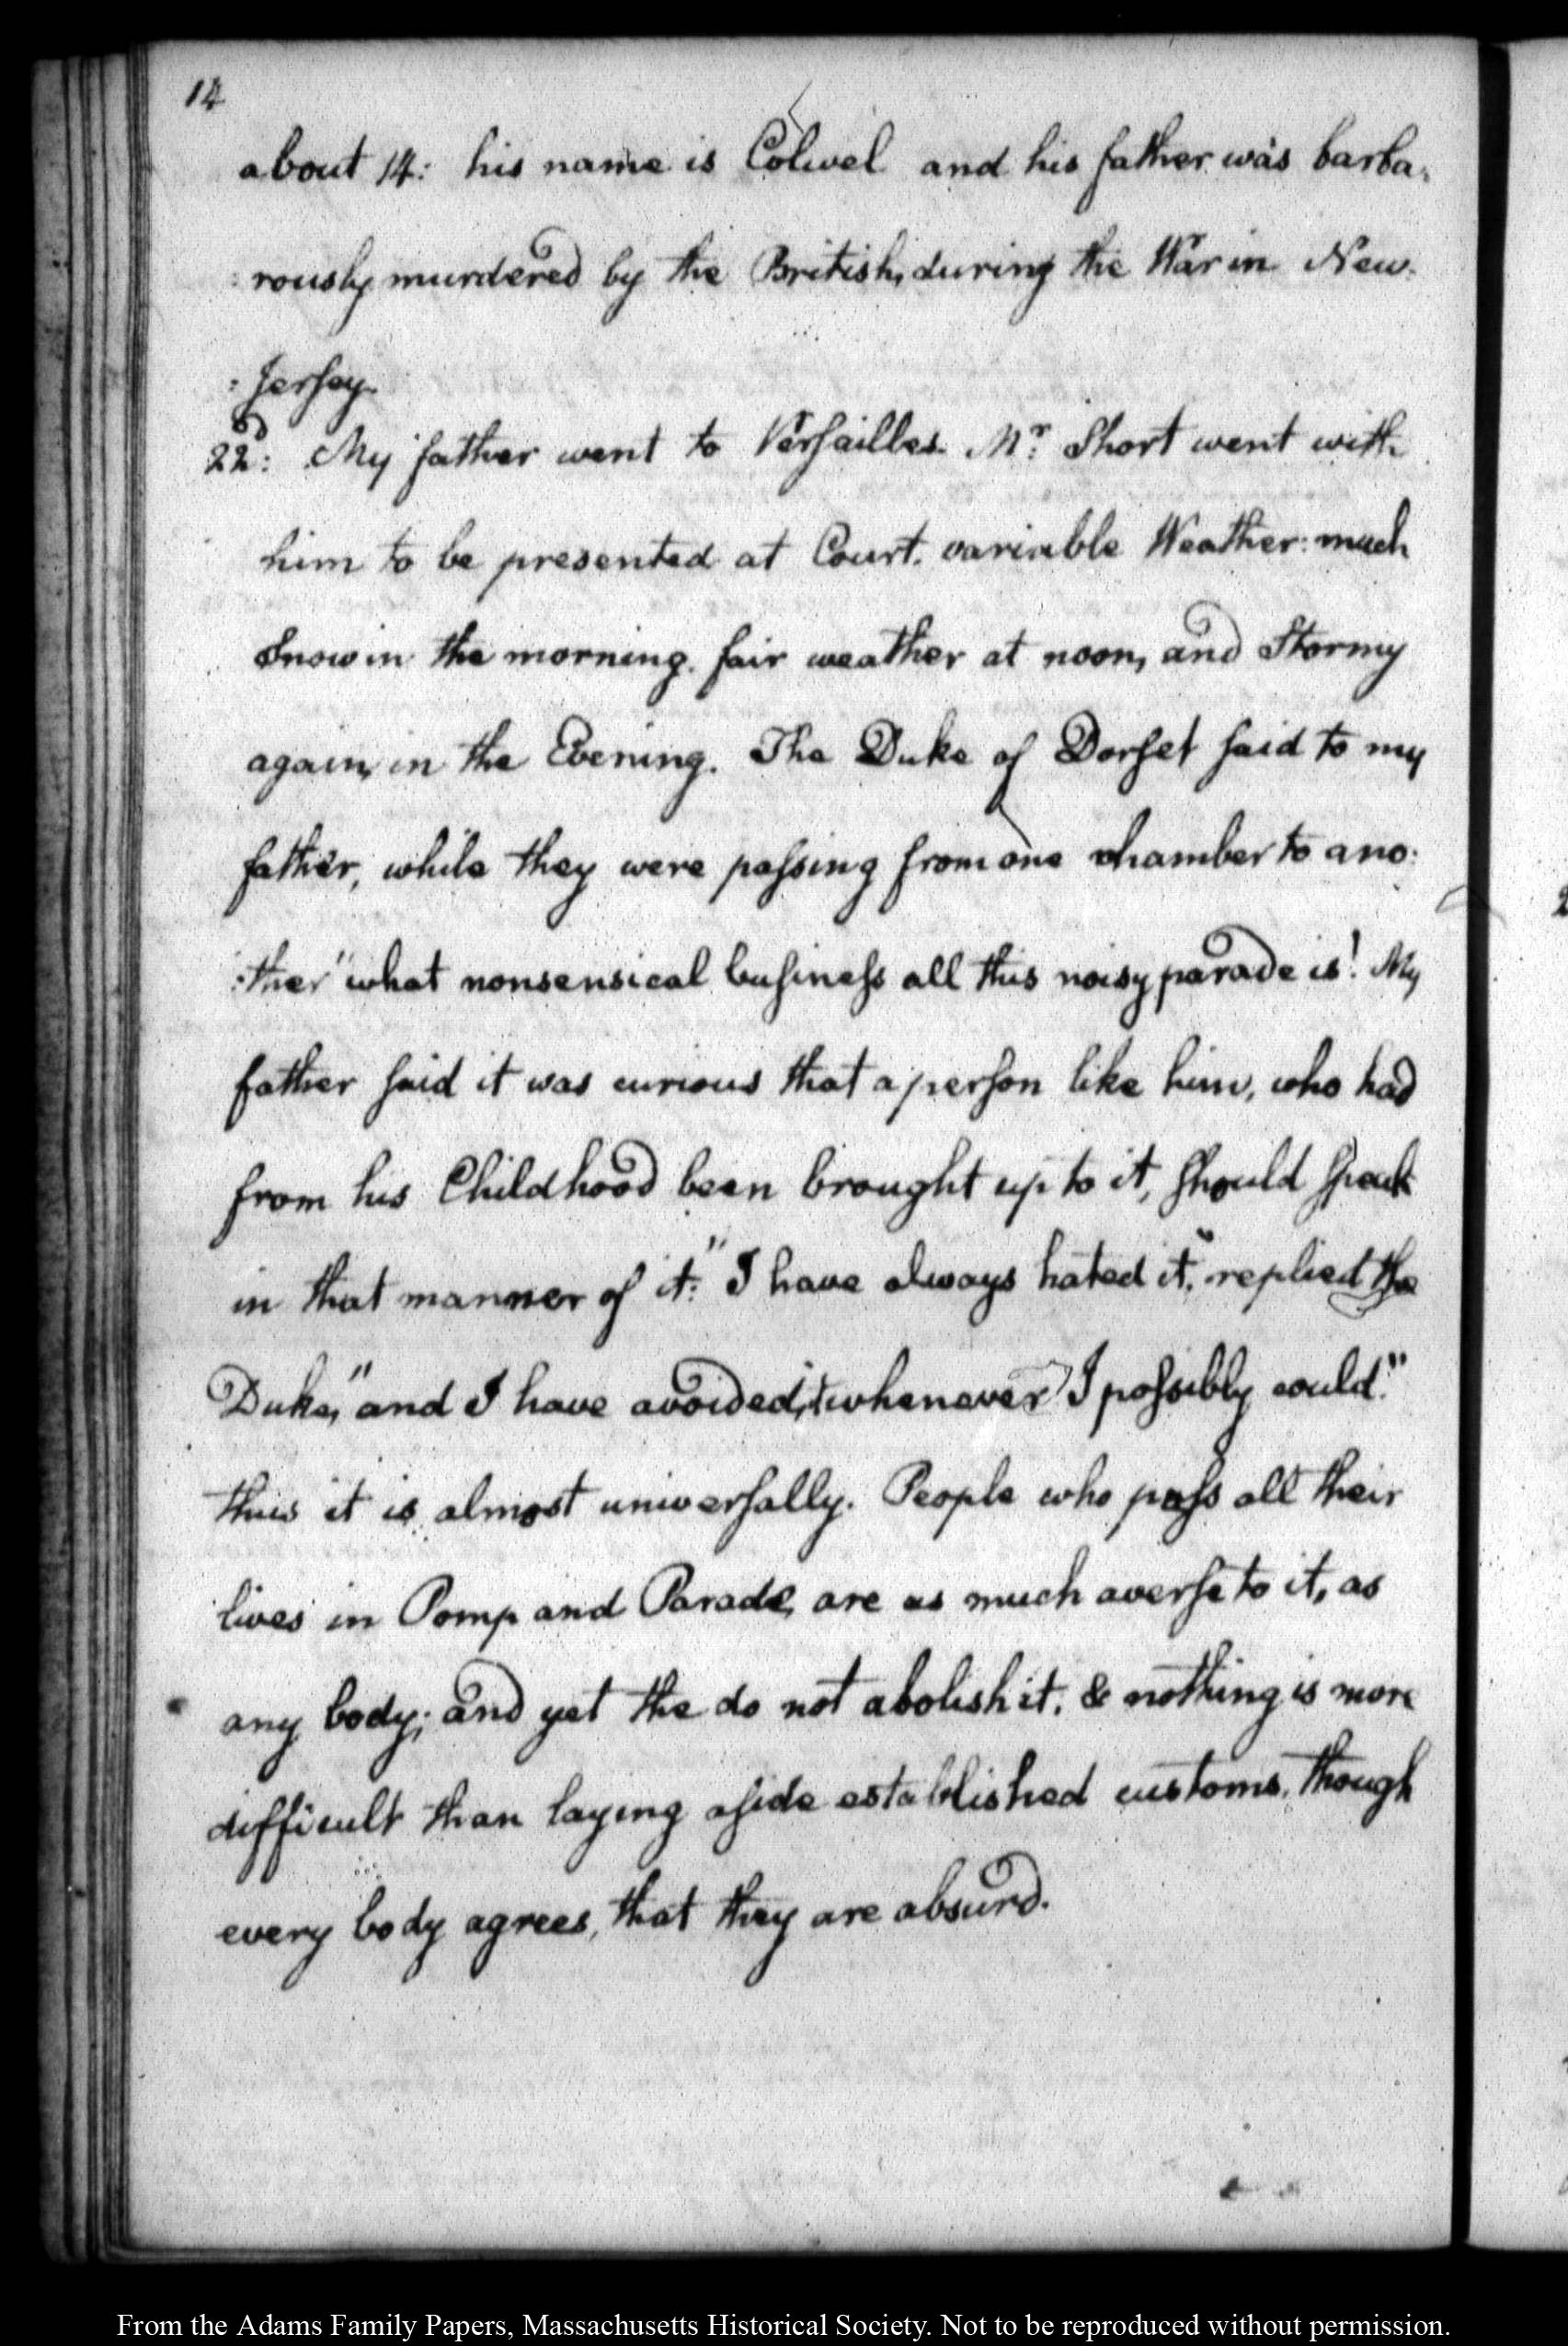 14
about 14: his name is Colwel and his father was barba-
:rously murdered by the British, during the War in New-
:Jersey.
22d: My father went to Versailles. Mr: Short went with
him to be presented at Court. variable Weather: much
Snow in the morning. fair weather at noon, and Stormy
again, in the Evening. The Duke of Dorset said to my
father, while they were passing from one chamber to ano:
:ther "what nonsensical business all this noisy parade is! My
father said it was curious that a person like him, who had
from his Childhood been brought up to it, should speak
in that manner of it: "I have always hated it," replied the
Duke, "and I have avoided it whenever I possibly could."
thus it is almost universally. People who pass all their
lives in Pomp and Parade, are as much averse to it, as
any body; and yet the do not abolish it. & nothing is more
difficult than laying aside established customs, though
every body agrees, that they are absurd.
From the Adams Family Papers, Massachusetts Historical Society. Not to be reproduced without permission.